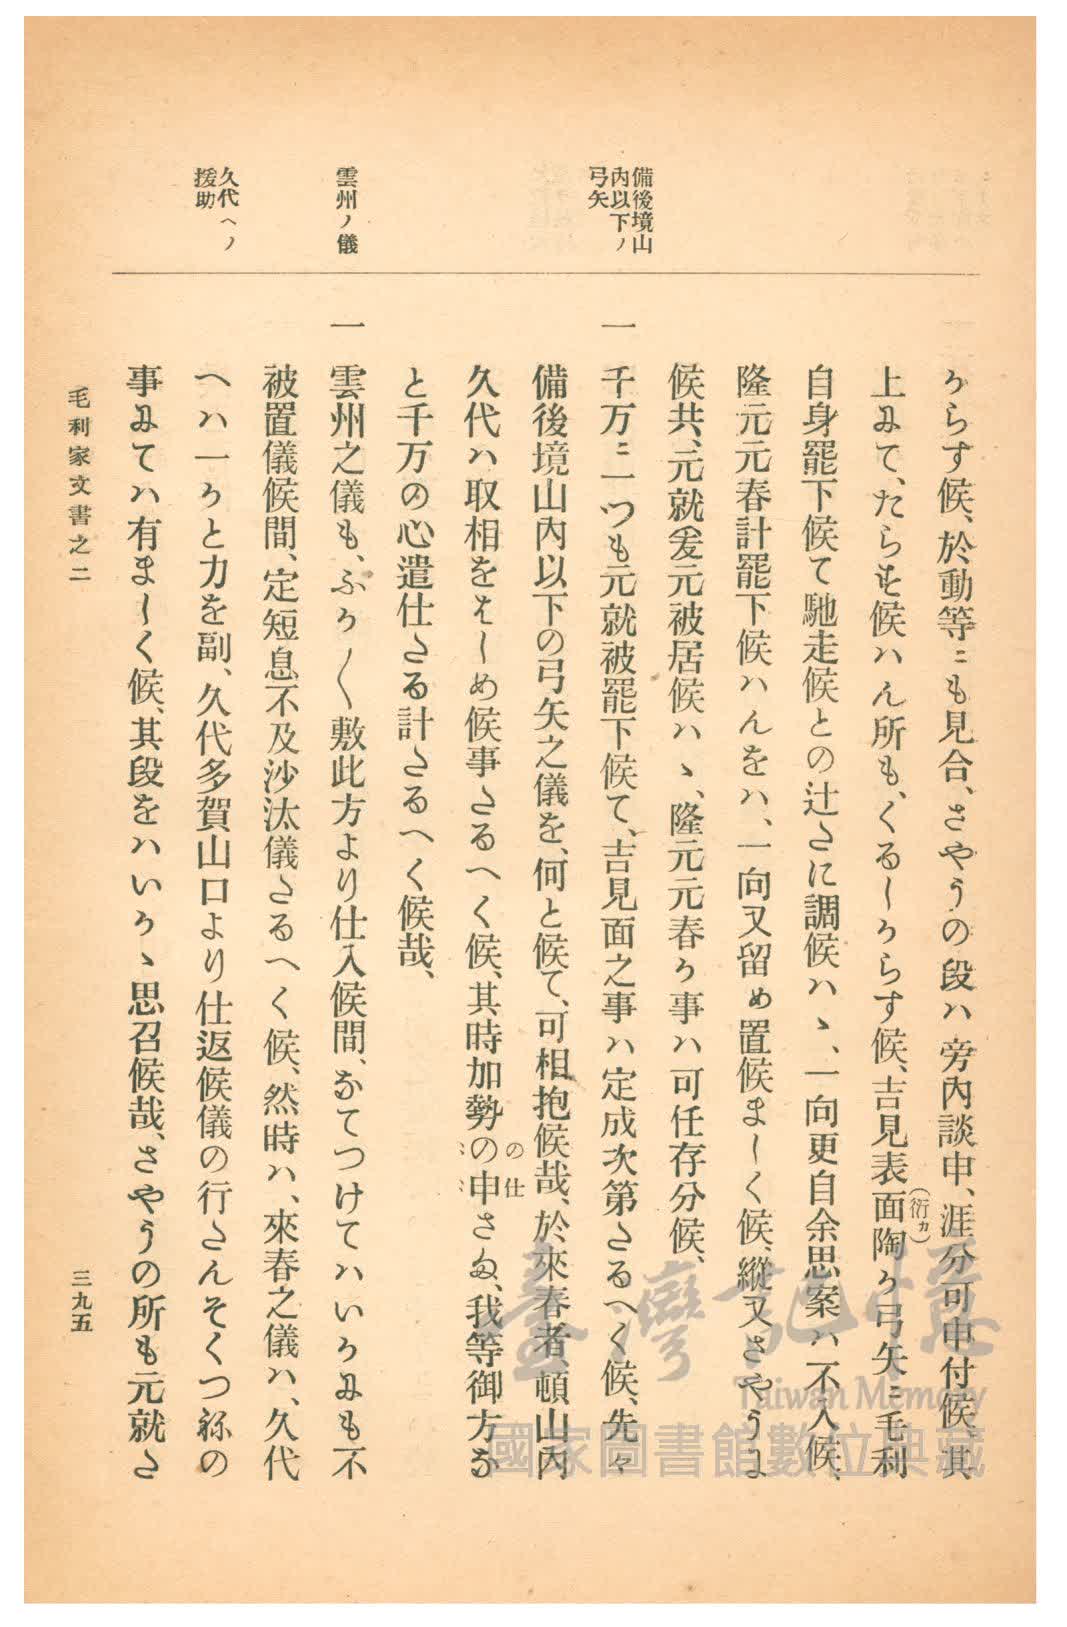 備後境山
内以下ノ
弓矢
雲州ノ儀
久代ヘノ
援助
からす候、於動等ニも見合、さやうの段ハ旁内談申、涯分可申付候、其
上みて、たらす候ハん所も、くるしからす候、吉見表面陶か弓矢ニ毛利
(衍カ)
自身罷下候て馳走候との辻さに調候ハヽ、一向更自余思案ハ不入候、
隆元元春計罷下候ハんをハ、一向又留め置候ましく候、縱又さやうに
候共、元就爰元被居候ハヽ、隆元元春か事ハ可任存分候、
一 千万ニ一つも元就被罷下候て、吉見面之事ハ定成次第たるへく候、先々
備後境山内以下の弓矢之儀を、何と候て、可相抱候哉、於來春者、頓山内
久代ハ取相をはしめ候事たるへく候、其時加勢の申さぬ、我等御方な
の仕
と千万の心遣仕たる計たるへく候哉、
一 雲州之儀も、ふか〱敷此方より仕入候間、なてつけてハいかにも不
被置儀候間、定短息不及沙汰儀たるへく候、然時ハ、來春之儀ハ、久代
へハ一かと力を副、久代多賀山口より仕返候儀の行さんそくつねの
事みてハ有ましく候、其段をハいかヽ思召候哉、さやうの所も元就さ
毛利家文書之二
三九五
臺灣記憶
Taiwan Memory
國家圖書館數位典藏